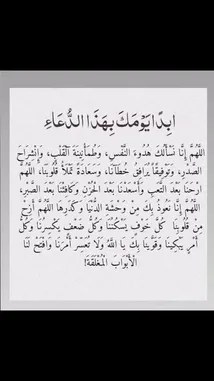 ابدأ يومك بهذا الدعاء
اللَّهُمَّ إِنَّا نَسْأَلُكَ هُدُوءَ النَّفْسِ، وَطُمَأْنِينَةَ الْقَلْبِ، وَإِنْشِرَاحَ
الصَّدْرِ، وَتَوْفِيقًا يُرَافِقُ خُطَانَا، وَسَعَادَةً تَمْلَأُ قُلُوبَنَا، اللَّهُمَّ
ارِحْنَا بَعْدَ التَّعَبِ وَأَسْعِدْنَا بَعْدَ الْحُزْنِ وَكَافِئْنَا بَعْدَ الصَّبْرِ،
اللَّهُمَّ إِنَّا نَعُوذُ بِكَ مِنْ وَحْشَةِ الدُّنْيَا وَكَدَرِهَا اللَّهُمَّ أَزِحْ
مِنْ قُلُوبِنَا كُلَّ خَوْفٍ يَسْكُنُنَا وَكُلَّ ضَعْفٍ يَكْسِرُنَا وَكُلَّ
أَمْرٍ يُبْكِينَا وَقَوِّينَا بِكَ يَا اللَّهُ وَلَا تُعَسِّرْ أَمْرَنَا وَافْتَحْ لَنَا
الْأَبْوَابَ الْمُغْلَقَةَ!